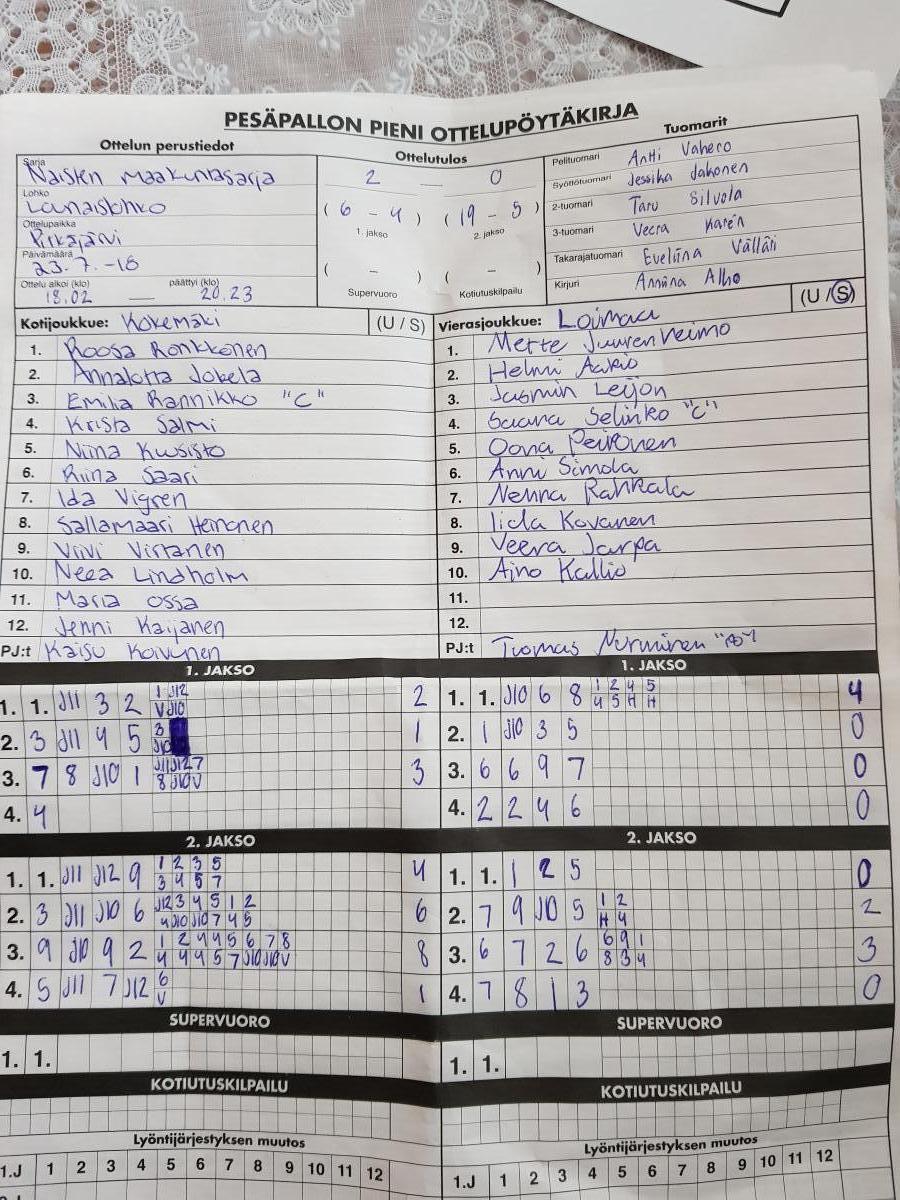 PESÄPALLON PIENI OTTELUPÖYTÄKIRJA
Ottelun perustiedot
Sarja
Naisten maakuntasarja
Lohko
Lounaislohko
Ottelupaikka
Pitkäjärvi
Päivämäärä
23.7.-18
Ottelu alkoi (klo) päättyi (klo)
18.02 — 20.23
Ottelutulos
2 — 0
( 6 - 4 ) ( 19 - 5 )
1. jakso 2. jakso
( - ) ( - )
Supervuoro Kotiutuskilpailu
Tuomarit
Pelituomari Antti Vahero
Syöttötuomari Jessika Jakonen
2-tuomari Taru Silvola
3-tuomari Veera Karén
Takarajatuomari Eveliina Välläri
Kirjuri Anniina Alho
Kotijoukkue: Kokemäki (U / S)
1. Roosa Ronkkonen
2. Annalotta Jokela
3. Emilia Rannikko "C"
4. Krista Salmi
5. Niina Kuusisto
6. Riina Saari
7. Ida Vigren
8. Sallamaari Heinonen
9. Viivi Virtanen
10. Neea Lindholm
11. Maria Ossa
12. Jenni Kaijanen
PJ:t Kaisu Koivunen
Vierasjoukkue: Loimaa (U / S)
1. Mette Juurenheimo
2. Helmi Aakio
3. Jasmin Leijon
4. Saana Selinko "C"
5. Oona Peikonen
6. Anni Simola
7. Nenna Rahkala
8. Iida Kovanen
9. Veera Jarpa
10. Aino Kallio
11.
12.
PJ:t Tuomas Nurminen
1. JAKSO
1. 1. J11 3 2 1 J12 2
V J10
2. 3 J11 4 5 3 1
J10
3. 7 8 J10 1 J11 J12 7 3
8 J10 V
4. 4
1. JAKSO
1. 1. J10 6 8 1 2 4 5 4
4 5 H H
2. 1 J10 3 5 0
3. 6 6 9 7 0
4. 2 2 4 6 0
2. JAKSO
1. 1. J11 J12 9 1 2 3 5 4
3 4 5 7
2. 3 J11 J10 6 J12 3 4 5 1 2 6
4 J10 J10 7 4 5
3. 9 J10 9 2 1 2 4 4 5 6 7 8 8
4 4 4 5 7 J10 J10 V
4. 5 J11 7 J12 6 1
V
2. JAKSO
1. 1. 1 2 5 0
2. 7 9 J10 5 1 2 2
H 4
3. 6 7 2 6 6 9 1 3
8 3 4
4. 7 8 1 3 0
SUPERVUORO
1. 1.
SUPERVUORO
1. 1.
KOTIUTUSKILPAILU
KOTIUTUSKILPAILU
Lyöntijärjestyksen muutos
1.J 1 2 3 4 5 6 7 8 9 10 11 12
Lyöntijärjestyksen muutos
1.J 1 2 3 4 5 6 7 8 9 10 11 12